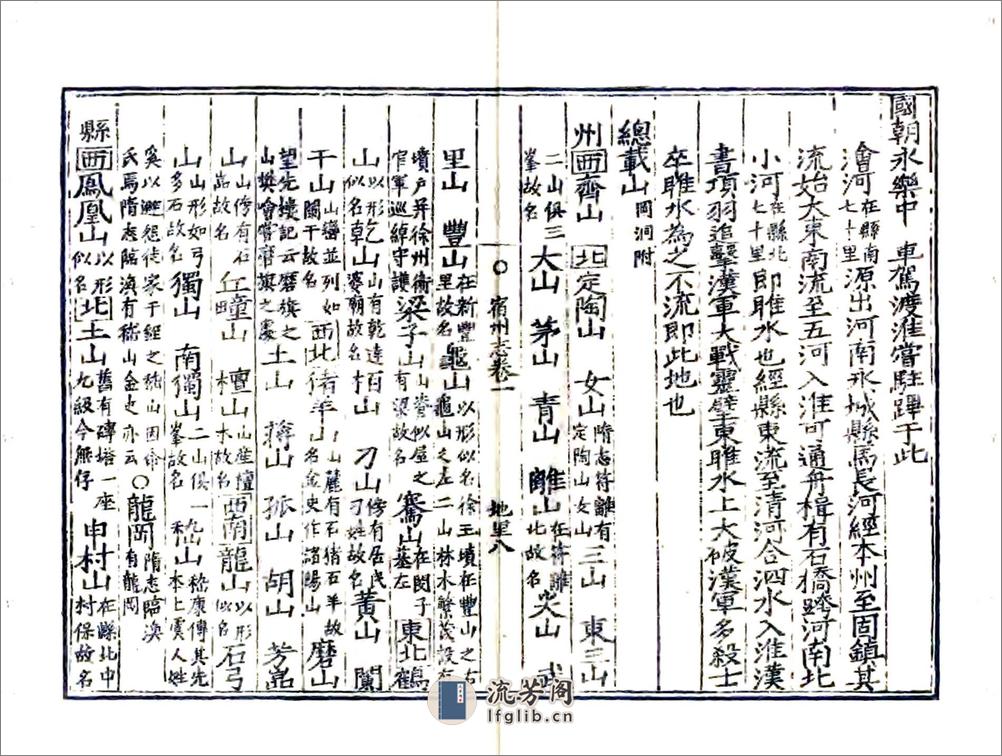 國朝永樂中　車駕渡淮嘗駐蹕于此
澮河在縣南七十里源出河南永城縣馬長河經本州至固鎮其
流始大東南流至五河入淮河通舟楫有石橋跨河南北
小河在縣北七十里即睢水也經縣東流至清河合泗水入淮漢
書項羽追擊漢軍大戰靈壁東睢水上大破漢軍多殺士
卒睢水為之不流即此地也
總載山岡洞附
州西齊山　北定陶山　女山隋志符離有定陶山女山三山　東三山
二山俱三峯故名大山　茅山　青山　離山在符離北故名　武
宿州志卷一
地里八
里山　豐山在新豐里故名龜山以形似名徐王墳在豐山之右龜山之左二山林木繁茂設有
墳戶并徐州衛官軍巡綽守護梁子山山脊似屋之有梁故名騫山在閔子墓左東北鶴
山以形似名乾山山有乾達婆廟故名栢山　刁山傍有居民刁姓故名黃山　闌
干山山巒並列如闌干故名西北猪羊山山麓有石猪石羊故名金史作諸陽山磨山
望先壤記云磨旗之山樊噲嘗磨旗之處土山　　孤山　胡山　芳
山山傍有石故名瞳山　檀山山產檀木故名西南龍山以形似名石弓
山山形如弓山多石故名獨山　南獨山二山俱一峯故名　嵇山九嵇康傳其先本上虞人姓
奚以避怨徙家于銍之嵇山因命氏焉隋志臨渙有嵇山金史亦云〇龍岡隋志臨渙有龍岡
縣西鳳凰山以形似名北土山舊有磚塔一座九級今無存申村山在縣北申村保故名
流芳阁
lfglib.cn